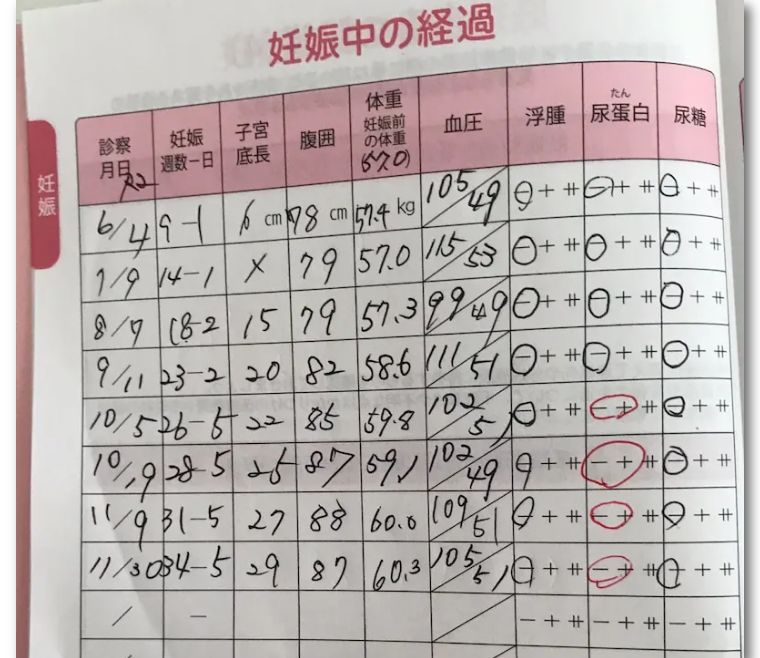 妊娠中の経過
妊娠
診察月日 妊娠週数一日 子宮底長 腹囲 体重 妊娠前の体重 (57.0) 血圧 浮腫 尿蛋白 たん 尿糖
R2
6/4 9-1 cm 78 cm 57.4 kg 105/49 - + ⧺ - + ⧺ - + ⧺
7/9 14-1 × 79 57.0 115/53 - + ⧺ - + ⧺ - + ⧺
8/7 18-2 15 79 57.3 99/49 - + ⧺ - + ⧺ - + ⧺
9/11 23-2 20 82 58.6 111/51 - + ⧺ - + ⧺ - + ⧺
10/5 26-5 22 85 59.8 102/51 - + ⧺ - + ⧺ - + ⧺
10/19 28-5 25 87 59.1 102/49 - + ⧺ - + ⧺ - + ⧺
11/9 31-5 27 88 60.0 109/51 - + ⧺ - + ⧺ - + ⧺
11/30 34-5 29 87 60.3 105/51 - + ⧺ - + ⧺ - + ⧺
/ - / - + ⧺ - + ⧺ - + ⧺